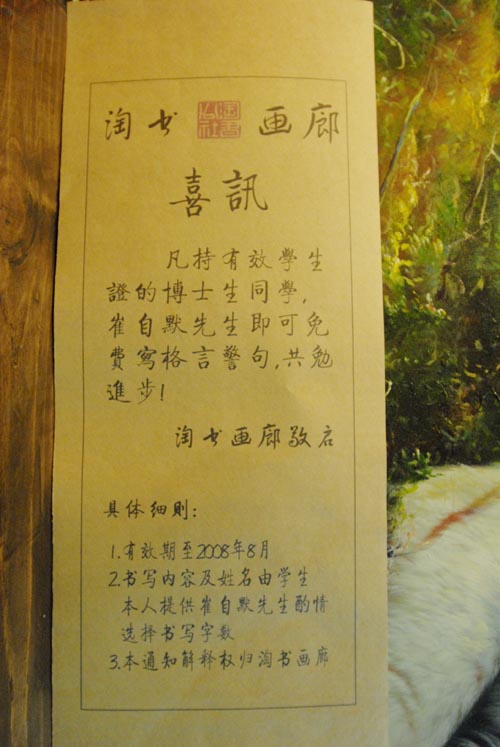 淘书画廊
喜訊
凡持有效學生
證的博士生同學,
崔自默先生即可免
費寫格言警句,共勉
進步!
淘书画廊敬启
具体细则:
1.有效期至2008年8月
2.书写内容及姓名由学生
本人提供崔自默先生酌情
选择书写字数
3.本通知解释权归淘书画廊